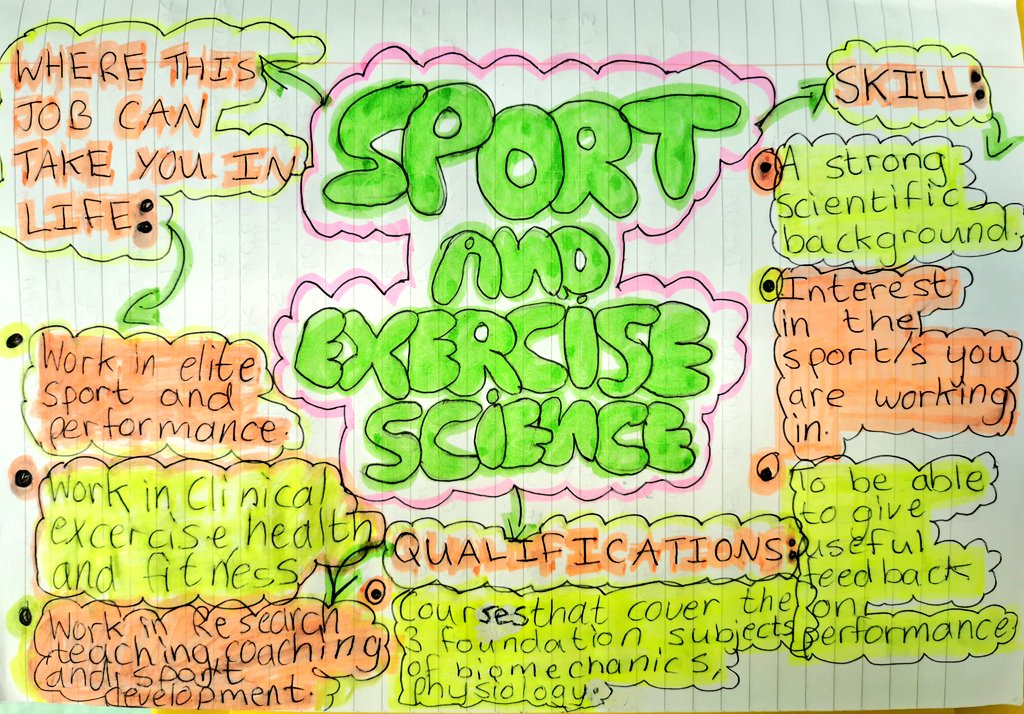 SPORT
AND
EXERCISE
SCIENCE
WHERE THIS
JOB CAN
TAKE YOU IN
LIFE:
Work in elite
sport and
performance.
Work in Clinical
excercise health
and fitness
Work in Research
teaching, coaching
and sport
development.
QUALIFICATIONS:
Courses that cover the
3 foundation subjects
of biomechanics,
physiology.
SKILL:
A strong
scientific
background.
Interest
in the
sport/s you
are working
in.
To be able
to give
useful
feedback
on
performance